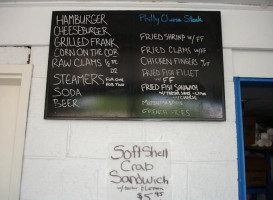 HAMBURGER
CHEESEBURGER
GRILLED FRANK
CORN ON THE COB
RAW CLAMS 1/2 DZ
DZ
STEAMERS FOR ONE
FOR TWO
SODA
BEER
Philly Cheese Steak
FRIED SHRIMP W/FF
FRIED CLAMS W/FF
CHICKEN FINGERS W/FF
FRIED FISH FILLET
W/FF
FRIED FISH SANDWICH
Soft Shell
Crab
Sandwich